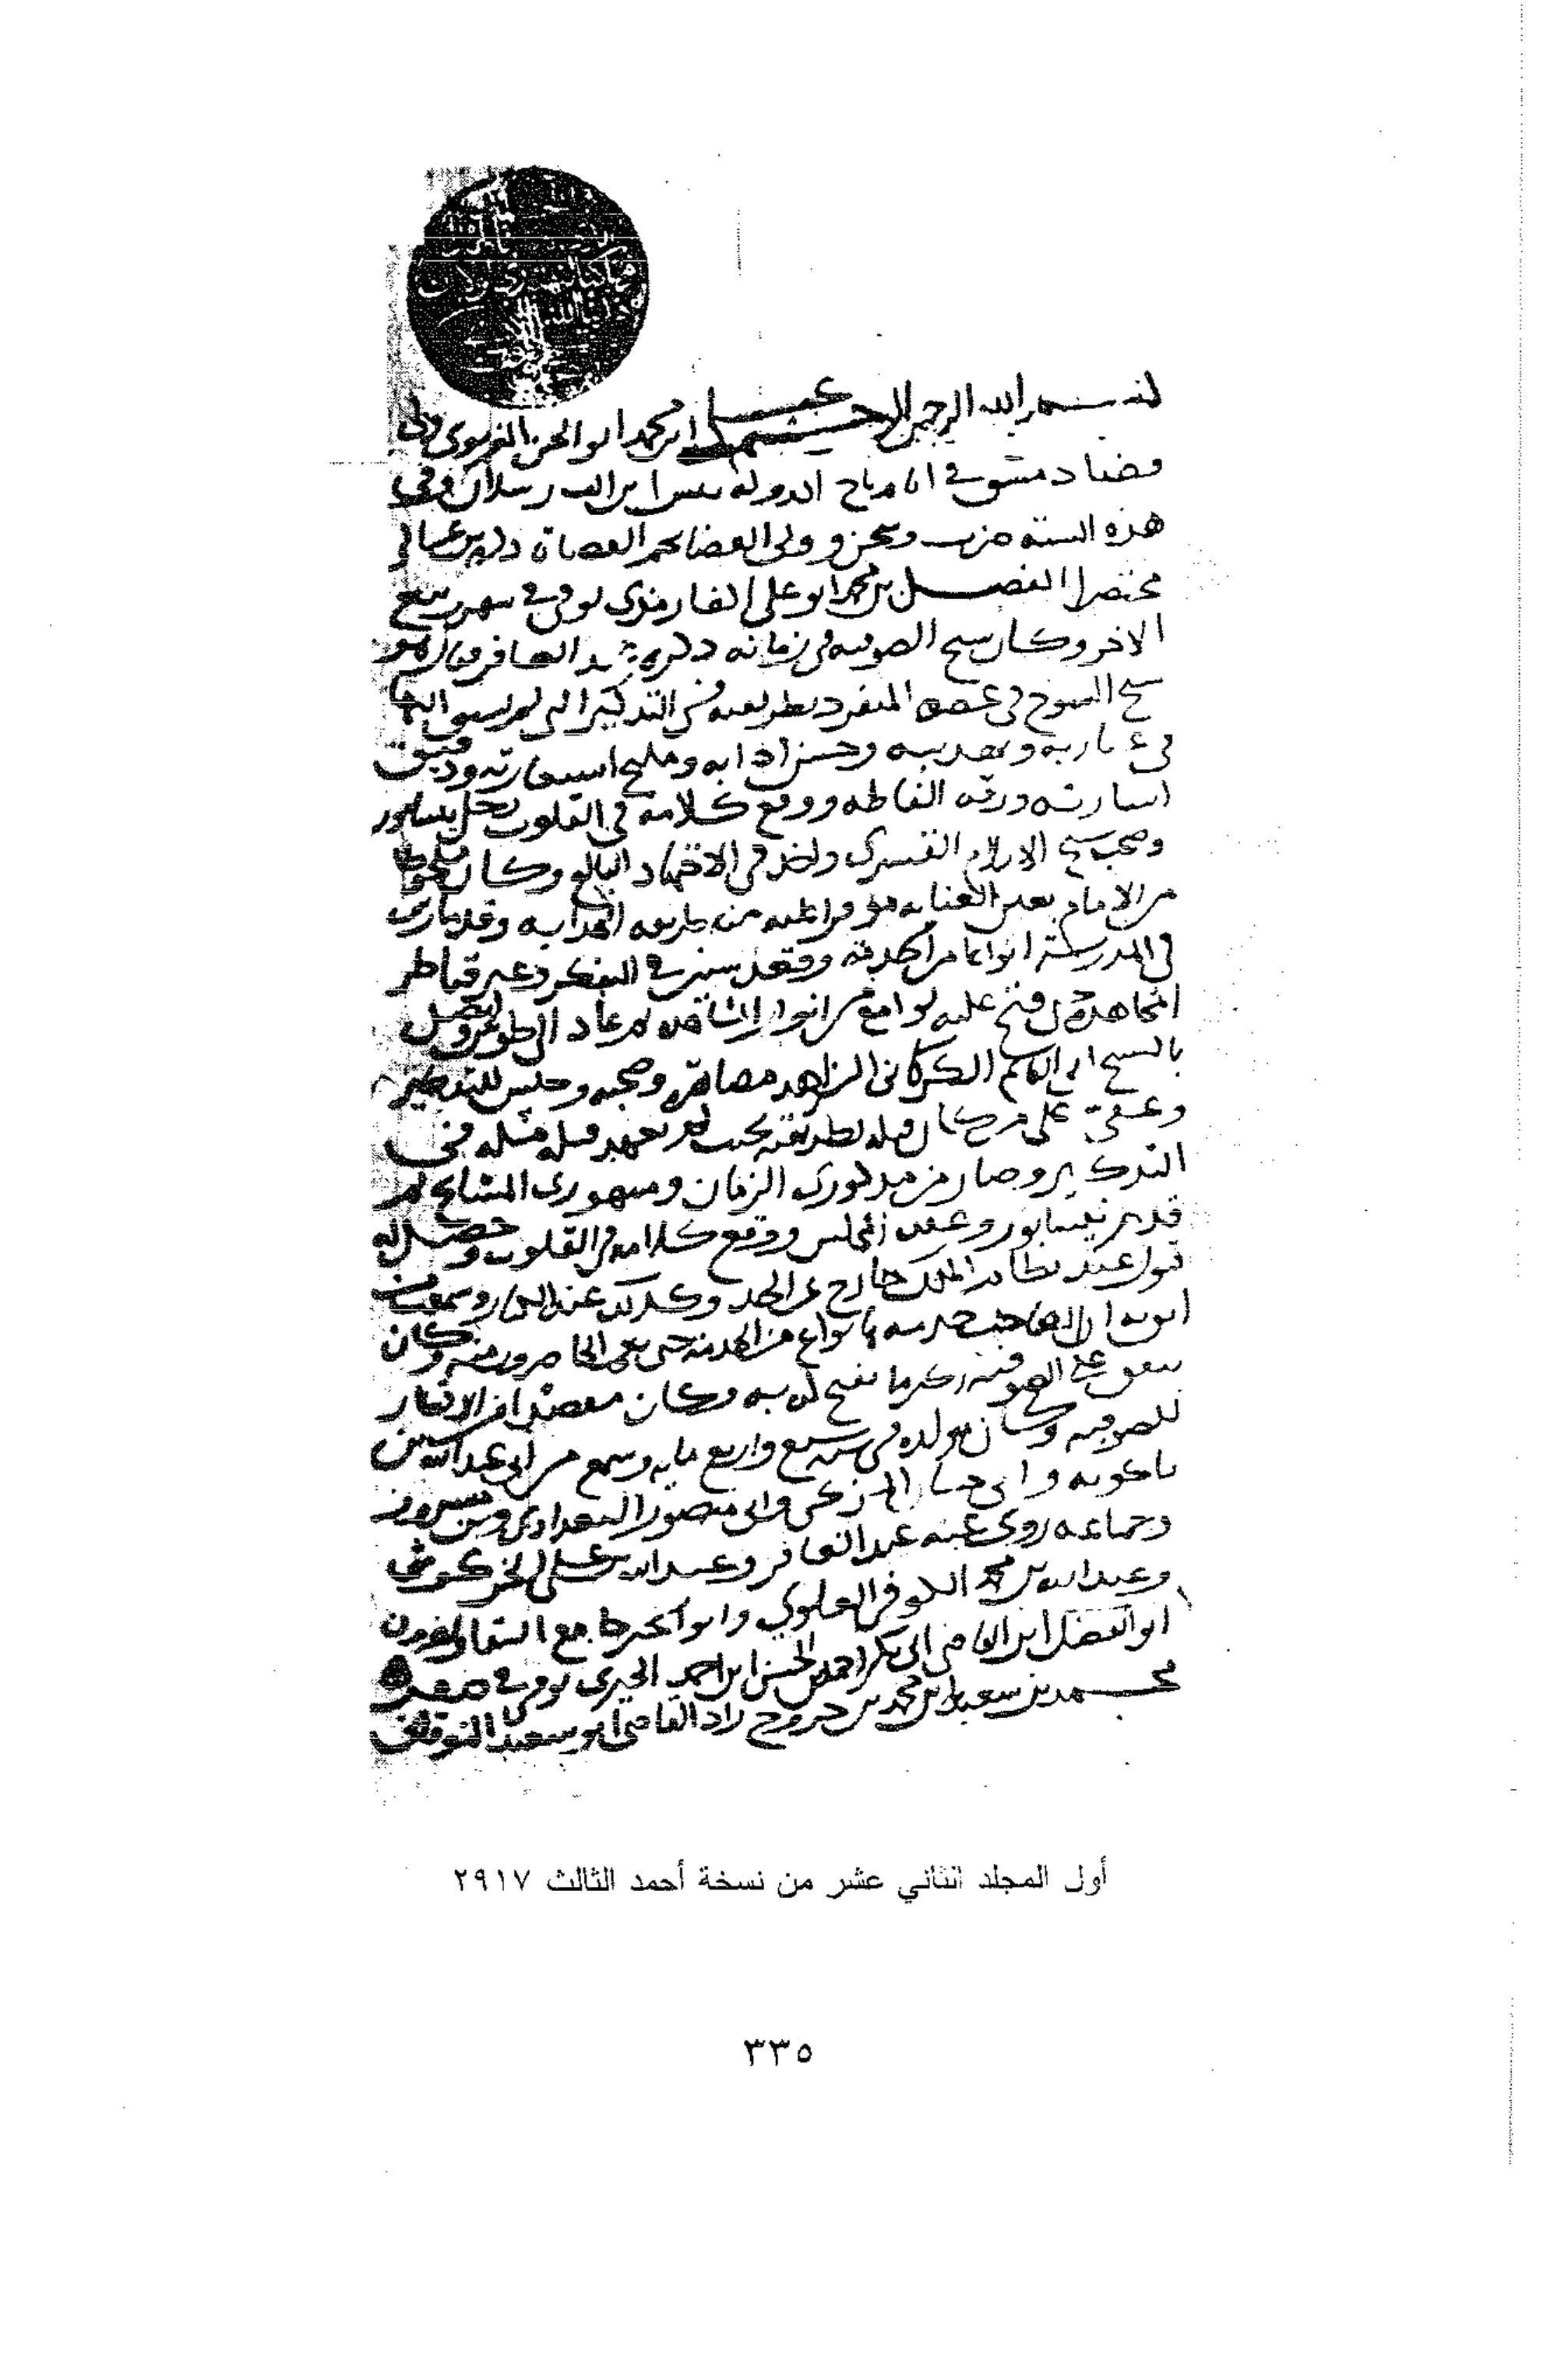 بسم الله الرحمن الرحيم علي ابن محمد ابو الحسن الغزنوي ولي
قضا دمشق في ايام تاج الدولة تتش ابن الب رسلان وفي
هذه السنة ضرب وسجن وولي القضا نجم القضاة
مختصرا الفضل بن محمد ابو علي الفارمذي توفي في شهر ربيع
الاخر وكان شيخ الصوفيه في زمانه ذكره عبد الغافر فقال هو
شيخ الشيوخ في عصره المنفرد بطريقته في التذكير التي لم يسبق اليها
في عبارته وتهذيبه وحسن ادابه ومليح استعارته ودقيق
اشارته ورقه الفاظه ووقع كلامه في القلوب دخل نيسابور
وصحب الامام القشيري واخذ في الاجتهاد البالغ وكان ملحوظا
من الامام بعين العنايه موفرا عليه من طريقه الهدايه وقد مارس
في المدرسة انواعا من الخدمة وقعد سنين في التفكر وعبر قناطر
المجاهدة حتى فتح عليه لوامع من انوار المشاهدة ثم عاد الى طوس واتصل
بالشيخ ابي القاسم الكركاني الزاهد مصاهرة وصحبه وجلس للتذكير
وعفى على من كان قبله بطريقته بحيث لم يعهد قبله مثله في
التذكير وصار من مذكوري الزمان ومشهوري المشايخ ثم
قدم نيسابور وعقد المجلس ووقع كلامه في القلوب وحصل له
قبول عند نظام الملك خارج عن الحد وكذلك عند الكبار وسمعت ممن
اثق به ان الصاحب خدمه بانواع من الخدمة حتى تعجب الحاضرون منه وكان
ينفق على الصوفيه اكثر ما يفتح له به وكان مقصدا من الاقطار
للصوفيه وكان مولده في سنه سبع واربع مايه وسمع من ابي عبد الله بن
باكويه وابي حسان المزكي وابي منصور البغدادي وبن مسرور
وجماعه روى عنه عبد الغافر وعبد الله بن علي الخركوشي
وعبد الله بن محمد الكوفي العلوي وابو الخير جامع السقا واخرون
ابو الفضل ابن القاضي ابي بكر احمد بن الحسن ابن احمد الحيري توفي في صفر
محمد بن سعيد ابن محمد بن فروخ زاد القاضي ابو سعيد النوقاني
أول المجلد الثاني عشر من نسخة أحمد الثالث ٢٩١٧
٣٣٥